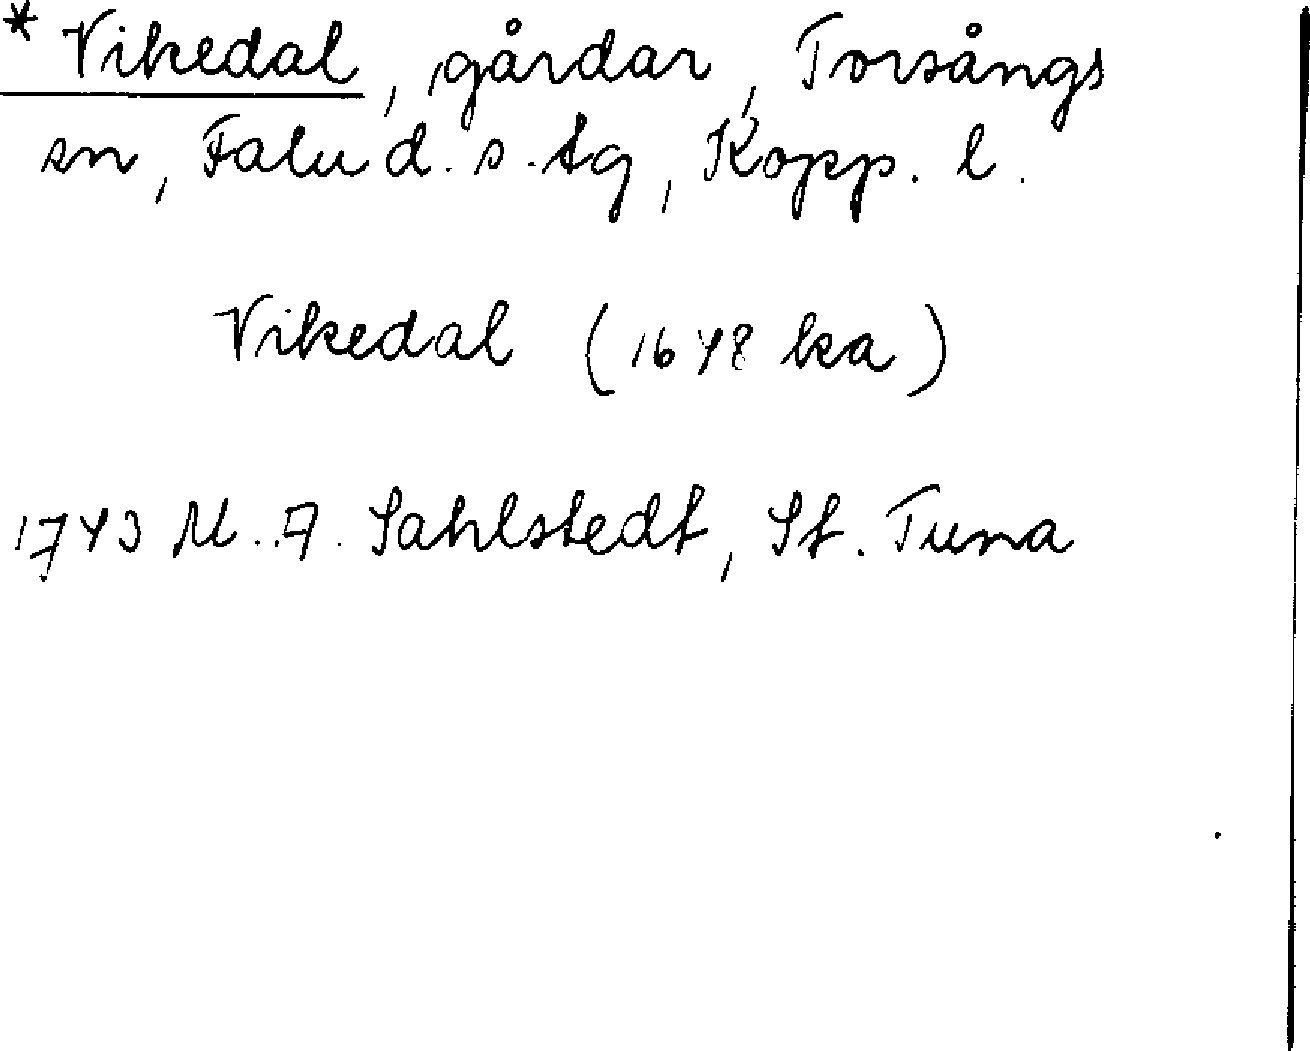 * Vikedal, gårdar, Torsångs
sn, Falu d. s. tg, Kopp. l.
Vikedal (1648 ka)
1743 M. A. Sahlstedt, St. Tuna